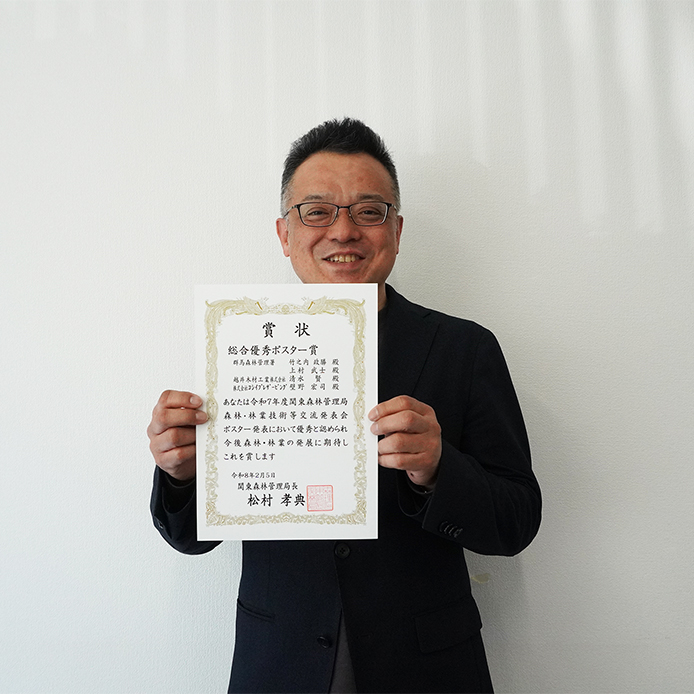 賞状
総合優秀ポスター賞
群馬森林管理署 竹之内 政勝 殿
上村 武士 殿
越井木材工業株式会社 清水 賢 殿
株式会社コシイプレザービング 壁野 宏司 殿
あなたは令和7年度関東森林管理局
森林・林業技術等交流発表会
ポスター発表において優秀と認められ
今後森林・林業の発展に期待し
これを賞します
令和8年2月5日
関東森林管理局長
松村 孝典